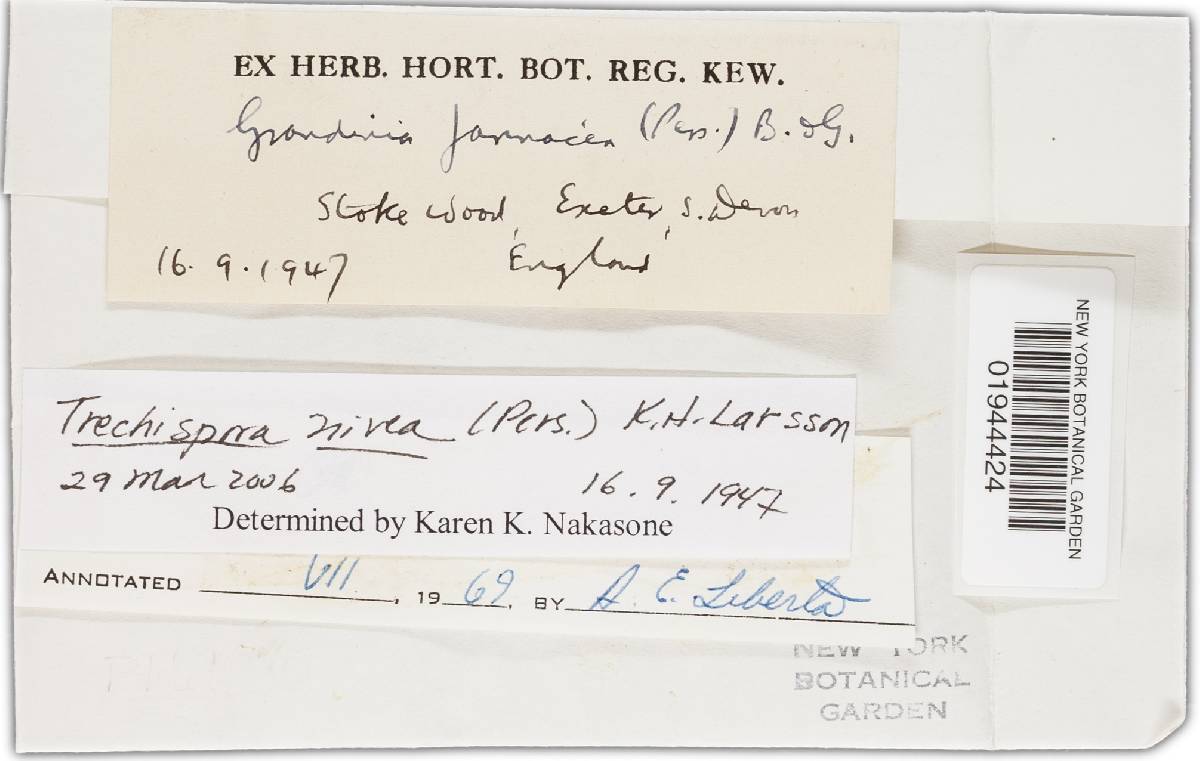 EX HERB. HORT. BOT. REG. KEW.
Grandinia farinacea (Pers.) B. & G.
Stoke Wood, Exeter, S. Devon
16. 9. 1947 England
Trechispora nivea (Pers.) K.H. Larsson
29 Mar 2006 16. 9. 1947
Determined by Karen K. Nakasone
ANNOTATED VII, 1969, BY A. E. Liberta
NEW YORK
BOTANICAL
GARDEN
NEW YORK BOTANICAL GARDEN
01944424